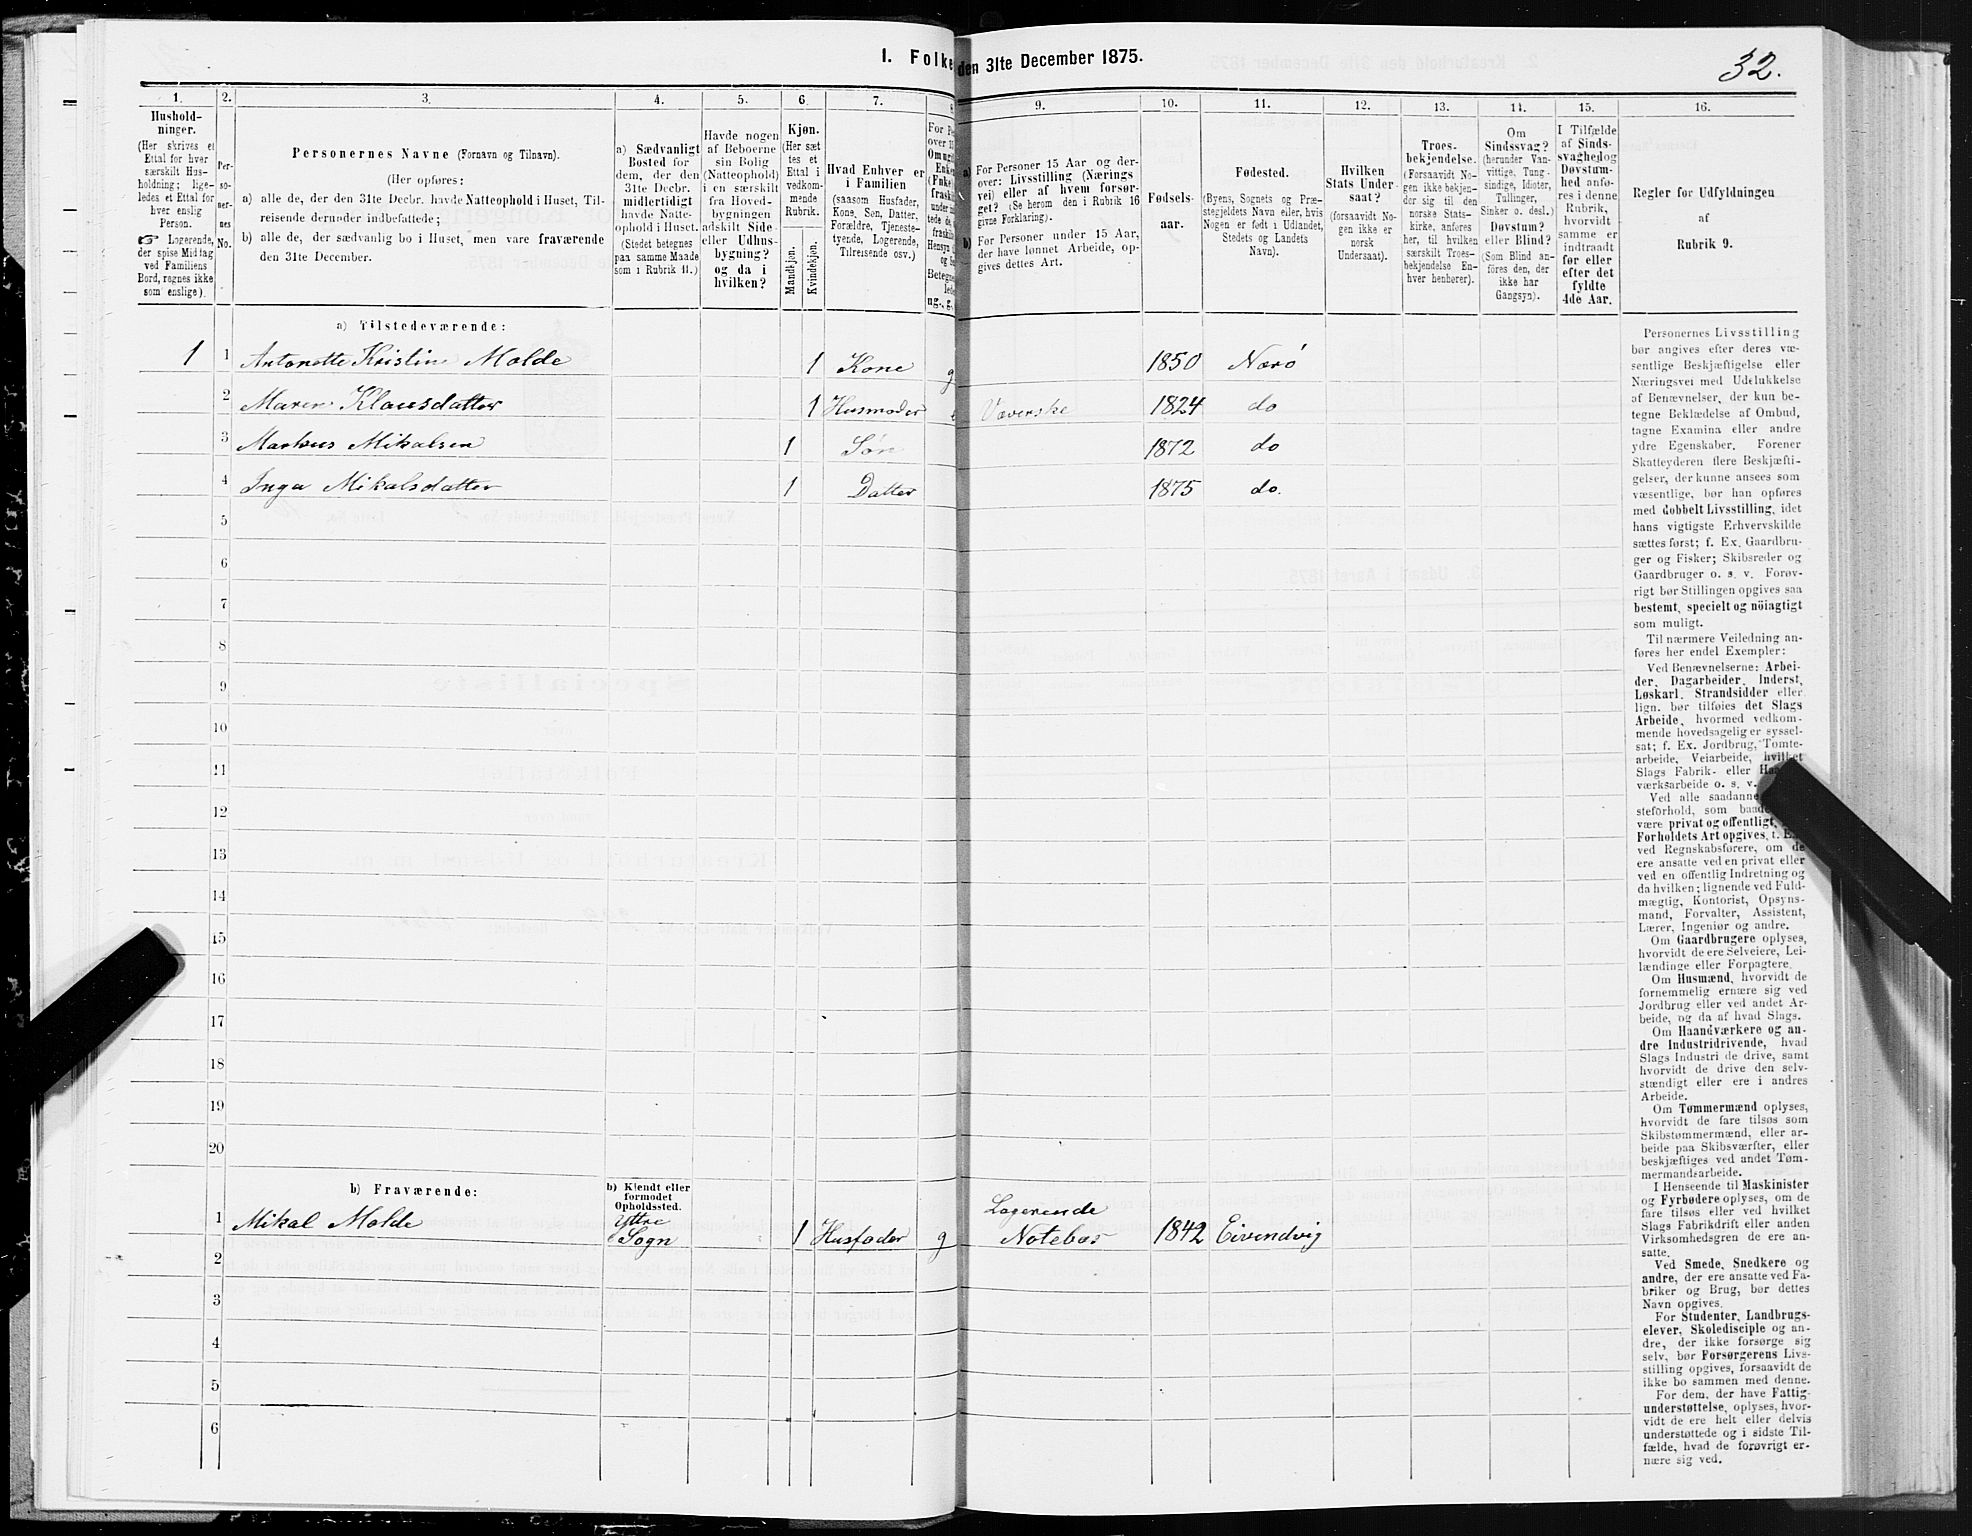 I. Folke den 31te December 1875.
32.
1.
2.
3.
4.
5.
6.
7.
8
9.
10.
11.
12.
13.
14.
15.
16.
Hushold-
ninger.
(Her skrives et
Ettal for hver
særskilt Hus-
holdning; lige-
ledes et Ettal for
hver enslig
Person.
☞ Logerende,
der spise Middag
ved Familiens
Bord, regnes ikke
som enslige).
Per-
so-
ner-
nes
No.
Personernes Navne (Fornavn og Tilnavn).
(Her opføres:
a) alle de, der den 31te Decbr. havde Natteophold i Huset, Til-
reisende derunder indbefattede;
b) alle de, der sædvanlig bo i Huset, men vare fraværende
den 31te December.
a) Sædvanligt
Bosted for
dem, der den
31te Decbr.
midlertidigt
havde Natte-
ophold i Huset.
(Stedet betegnes
paa samme Maade
som i Rubrik 11.)
Havde nogen
af Beboerne
sin Bolig
(Natteophold)
i en særskilt
fra Hoved-
bygningen
adskilt Side-
eller Udhus-
bygning?
og da i
hvilken?
Kjøn.
(Her sæt
tes et
Ettal i
vedkom-
mende
Rubrik.
Mandkjøn.
Kvindekjøn.
Hvad Enhver er
i Familien
(saasom Husfader,
Kone, Søn, Datter,
Forældre, Tjeneste-
tyende, Logerende,
Tilreisende osv.)
a) For Personer 15 Aar og der-
over: Livsstilling (Nærings
vei) eller af hvem forsør-
get? (Se herom den i Rubrik 16
givne Forklaring).
b) For Personer under 15 Aar,
der have lønnet Arbeide, op-
gives dettes Art.
Fødsels-
aar.
Fødested.
(Byens, Sognets og Præ-
stegjeldets Navn eller, hvis
Nogen er født i Udlandet,
Stedets og Landets
Navn).
Hvilken
Stats Under-
saat?
(forsaavidt No-
gen ikke er
norsk
Undersaat).
Troes-
bekjendelse.
(Forsaavidt No-
gen ikke bekjen-
der sig til den
norske Stats-
kirke, anføres
her, til hvilken
særskilt Troes-
bekjendelse En-
hver henhører).
Om
Sindssvag?
(herunder Van-
vittige, Tung-
sindige, Idioter,
Tullinger,
Sinker o. desl.)
Døvstum?
eller Blind?
(Som Blind an-
føres den, der
ikke har
Gangsyn).
I Tilfælde
af Sinds-
svaghed og
Døvstum-
hed anfø-
res i denne
Rubrik,
hvorvidt
samme er
indtraadt
før eller
efter det
fyldte
4de Aar.
Regler for Udfyldningen
af
Rubrik 9.
a) Tilstedeværende:
1 1 Antonette Kristine Molde 1 Kone g 1850 Nærø
2 Maren Klausdatter 1 Husmoder Væverske 1824 do
3 Markus Mikalsen 1 Søn 1872 do
4 Inga Mikalsdatter 1 Datter 1875 do.
5
6
7
8
9
10
11
12
13
14
15
16
17
18
19
20
b) Fraværende:
b) Kjendt eller
formodet
Opholdssted.
1 Mikal Molde Yttre Sogn 1 Husfader g Logerende Notebas 1842 Eivendvig
2
3
4
5
6
Personernes Livsstilling
bør angives efter deres væ-
sentlige Beskjæftigelse eller
Næringsvei med Udelukkelse
af Benævnelser, der kun be-
tegne Beklædelse af Ombud,
tagne Examina eller andre
ydre Egenskaber. Forener
Skatteyderen flere Beskjæfti-
gelser, der kunne ansees som
væsentlige, bør han opføres
med dobbelt Livsstilling, idet
hans vigtigste Erhvervskilde
sættes først; f. Ex. Gaardbru-
ger og Fisker; Skibsreder og
Gaardbruger o. s. v. Forøv-
rigt bør Stillingen opgives saa
bestemt, specielt og nöiagtigt
som muligt.
Til nærmere Veiledning an-
føres her endel Exempler:
Ved Benævnelserne: Arbei-
der, Dagarbeider, Inderst,
Løskarl, Strandsidder eller
lign. bør tilføies det Slags
Arbeide, hvormed vedkom-
mende hovedsagelig er syssel-
sat; f. Ex. Jordbrug, Tomte-
arbeide, Veiarbeide, hvilket
Slags Fabrik- eller
værksarbeide o. s. v.
Ved alle saadanne
steforhold, som
være privat og offentligt,
Forholdets Art opgives, t.
ved Regnskabsførere, om de
ere ansatte ved en privat eller
ved en offentlig Indretning og
da hvilken; lignende ved Fuld-
mægtig, Kontorist, Opsyns-
mand, Forvalter, Assistent,
Lærer, Ingeniør og andre.
Om Gaardbrugere oplyses,
hvorvidt de ere Selveiere, Lei-
lændinge eller Forpagtere.
Om Husmænd, hvorvidt de
fornemmelig ernære sig ved
Jordbrug eller ved andet Ar-
beide, og da af hvad Slags.
Om Haandværkere og an-
dre Industridrivende, hvad
Slags Industri de drive, samt
hvorvidt de drive den selv-
stændigt eller ere i andres
Arbeide.
Om Tømmermænd oplyses,
hvorvidt de fare tilsøs som
Skibstømmermænd, eller ar-
beide paa Skibsværfter, eller
beskjæftiges ved andet Tøm-
mermandsarbeide.
I Henseende til Maskinister
og Fyrbødere oplyses, om de
fare tilsøs eller ved hvilket
Slags Fabrikdrift eller anden
Virksomhedsgren de ere an-
satte.
Ved Smede, Snedkere og
andre, der ere ansatte ved Fa-
briker og Brug, bør dettes
Navn opgives.
For Studenter, Landbrugs-
elever, Skoledisciple og an-
dre, der ikke forsørge sig
selv, bør Forsørgerens Livs-
stilling opgives, forsaavidt de
ikke bo sammen med denne.
For dem, der have Fattig-
understøttelse, oplyses, hvor-
vidt de ere helt eller delvis
understøttede og i sidste Til-
fælde, hvad de forøvrigt er-
nære sig ved.